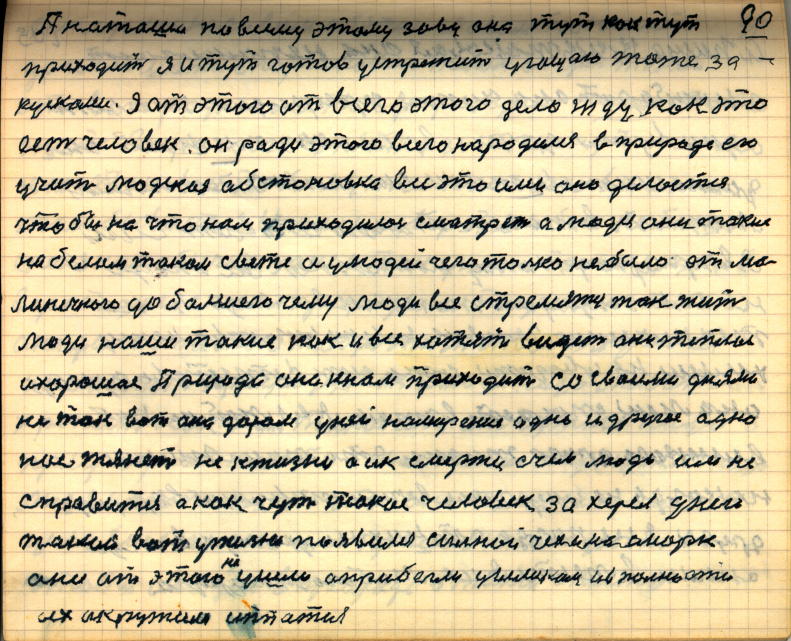 90
А наташи по всему этому зову она тут как тут
приходит я и тут готов устроит угощаю тоже за-
кусками. Я от этого от всего этого дела жду как это
ест человек. он ради этого всего народился в природе его
учит людская обстоновка все это или оно делается
что бы на что нам приходилос сматрет а люди они такие
на белом таком свете и улюдей чего толко небыло от ма-
линечного до болшего чему люди все стремятся так жит
люди наши такие как и все хотят видет они теплое
ихорошое Природа она кнам приходит со своими днями
не так вот она даром уней намерение одно и другое одно
нас тянет не кжизни а ик смерти счем люди им не
справится а как чут такое человек за
такой вот ужизни появился силной
они от этого не ушли априбегли целиком ивполности
их окружили